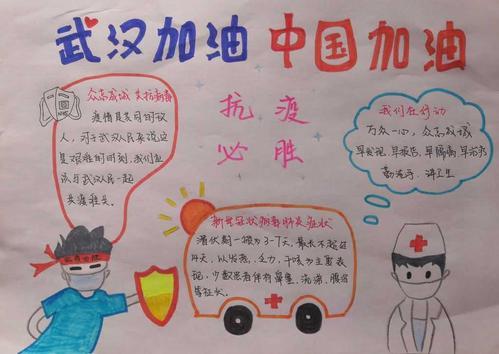 武汉加油 中国加油
众志成城 共抗病毒
疫情是共同的敌
人，对于武汉人民来说这
是艰难的时刻，我们应
该与武汉人民一起
共渡难关。
抗 疫
必 胜
我们在行动
万众一心，众志成城
早发现，早报告，早隔离，早治疗
勤洗手，讲卫生
新型冠状病毒肺炎症状
潜伏期一般为3-7天，最长不超过
14天，以发热，乏力，干咳为主要表
现，少数患者伴有鼻塞，流涕，腹泻
等症状。